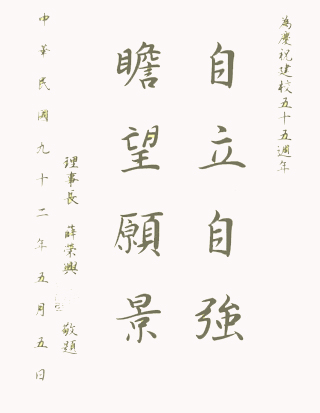 為慶祝建校五十五週年
自立自強
瞻望願景
理事長 薛榮興 敬題
中華民國九十二年五月五日